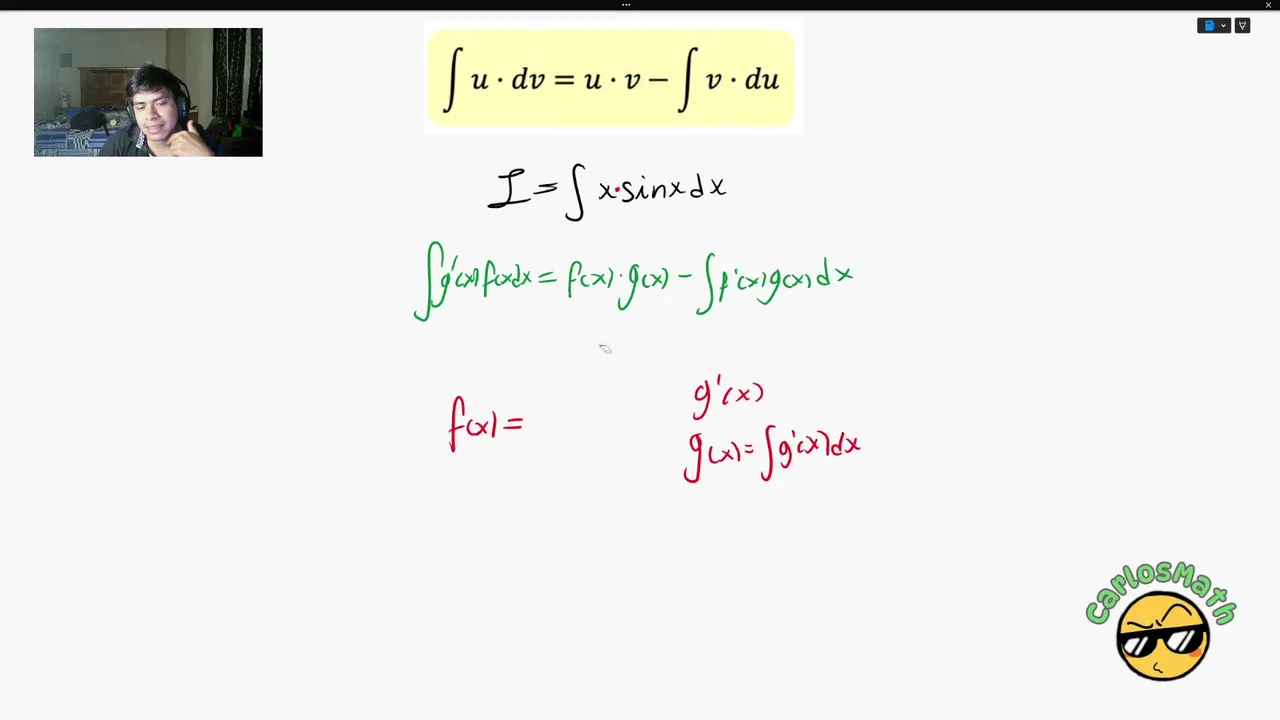 ∫ u · dv = u · v − ∫ v · du
I = ∫ x·sinx dx
∫g'(x) f(x)dx = f(x)·g(x) − ∫f'(x)g(x)dx
f(x) =
g'(x)
g(x) = ∫g'(x)dx
CarlosMath